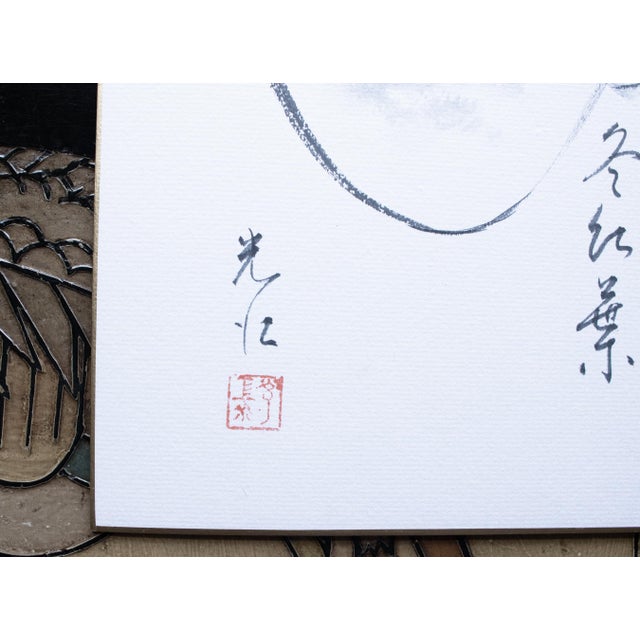 冬紅葉
光江